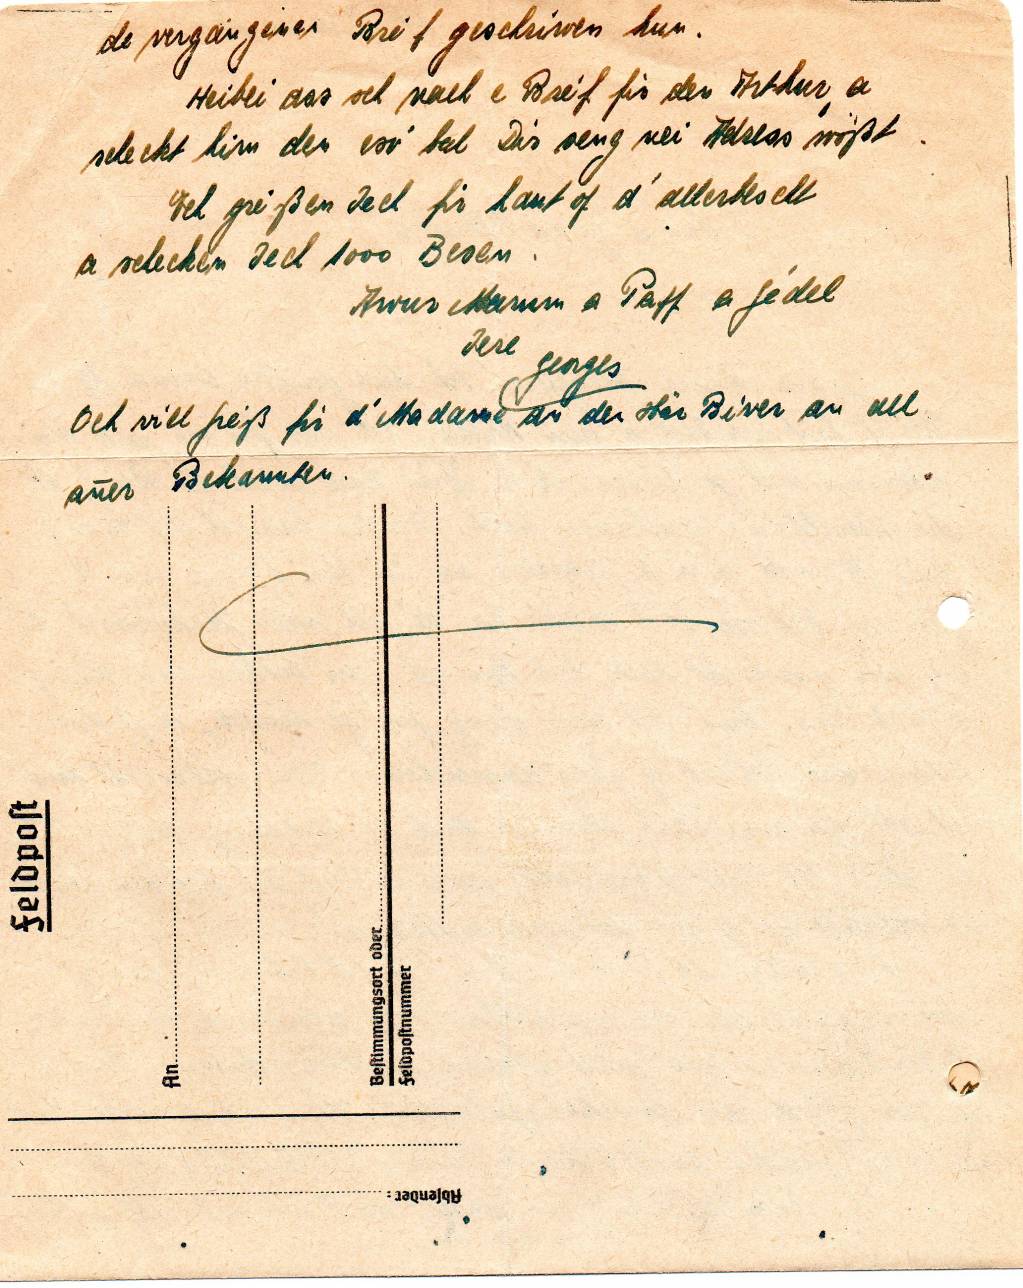 de vergangenen Breif geschriwen hun.
Heibei das och nach e Breif fir den Arthur, a
scheckt him den esó bal Dir seng nei Adress wößt.
Ech greißen Iech fir haut op d'allerbescht
a schecken Iech 1000 Besen.
Awur Mamm a Papp a Jédel
Iere
Georges
Och vill Greiß fir d'Madame an den Här Biver an all
aner Bekannten.
Feldpost
An
Bestimmungsort oder
Feldpostnummer
Absender: